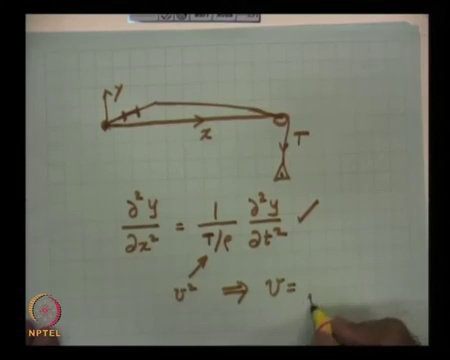 y
x
T
∂²y/∂x² = 1/(T/ρ) ∂²y/∂t² ✓
v² ⇒ v =
NPTEL